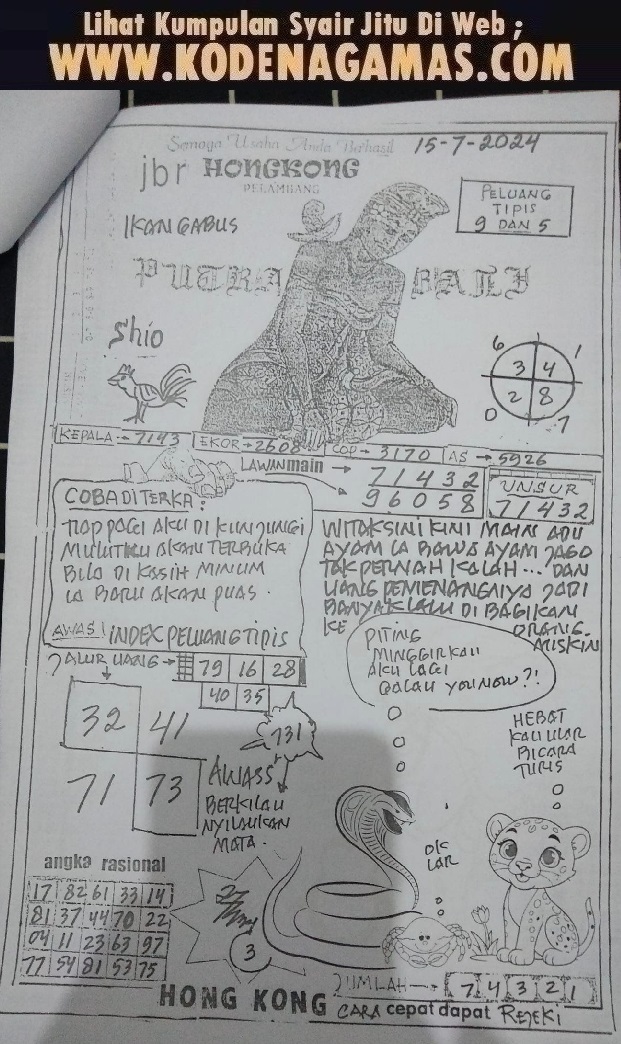 Lihat Kumpulan Syair Jitu Di Web ;
WWW.KODENAGAMAS.COM
Semoga Usaha Anda Berhasil
15-7-2024
jbr HONGKONG
PELAMBANG
PELUANG
TIPIS
9 DAN 5
IKAN GABUS
PUTRA
Shio
6 1
3 4
2 8
0 7
KEPALA → 7143 EKOR → 2608 COP → 3170 AS → 5926
LAWAN main → 7 1 4 3 2
9 6 0 5 8
UNSUR
7 1 4 3 2
COBA DITERKA :
TIAP PAGI AKU DI KUNJUNGI
MULUTKU AKAN TERBUKA
BILA DI KASIH MINUM
IA BARU AKAN PUAS .
AWAS! INDEX PELUANG TIPIS
WITAKSINI KINI MAIN ADU
AYAM IA BAWA AYAM JAGO
TAK PERNAH KALAH ... DAN
UANG PEMENANGNIYA JADI
BANYAK LALU DI BAGIKAN
KE ORANG
MISKIN
JALUR UANG → 79 16 28
40 35
32 41
71 73
731
AWASS
BERKILAU
NYILAUKAN
MATA .
PITING
MINGGIRKAU
AKU LAGI
GALAU YOU NOW?!
HEBAT
KALI ULAR
BICARA
TURIS
OK
LAR
angka rasional
17 82 61 33 14
81 37 44 70 22
04 11 23 63 97
77 54 81 53 75
3
JUMLAH → 7 4 3 2 1
HONG KONG CARA cepat dapat REJEKI